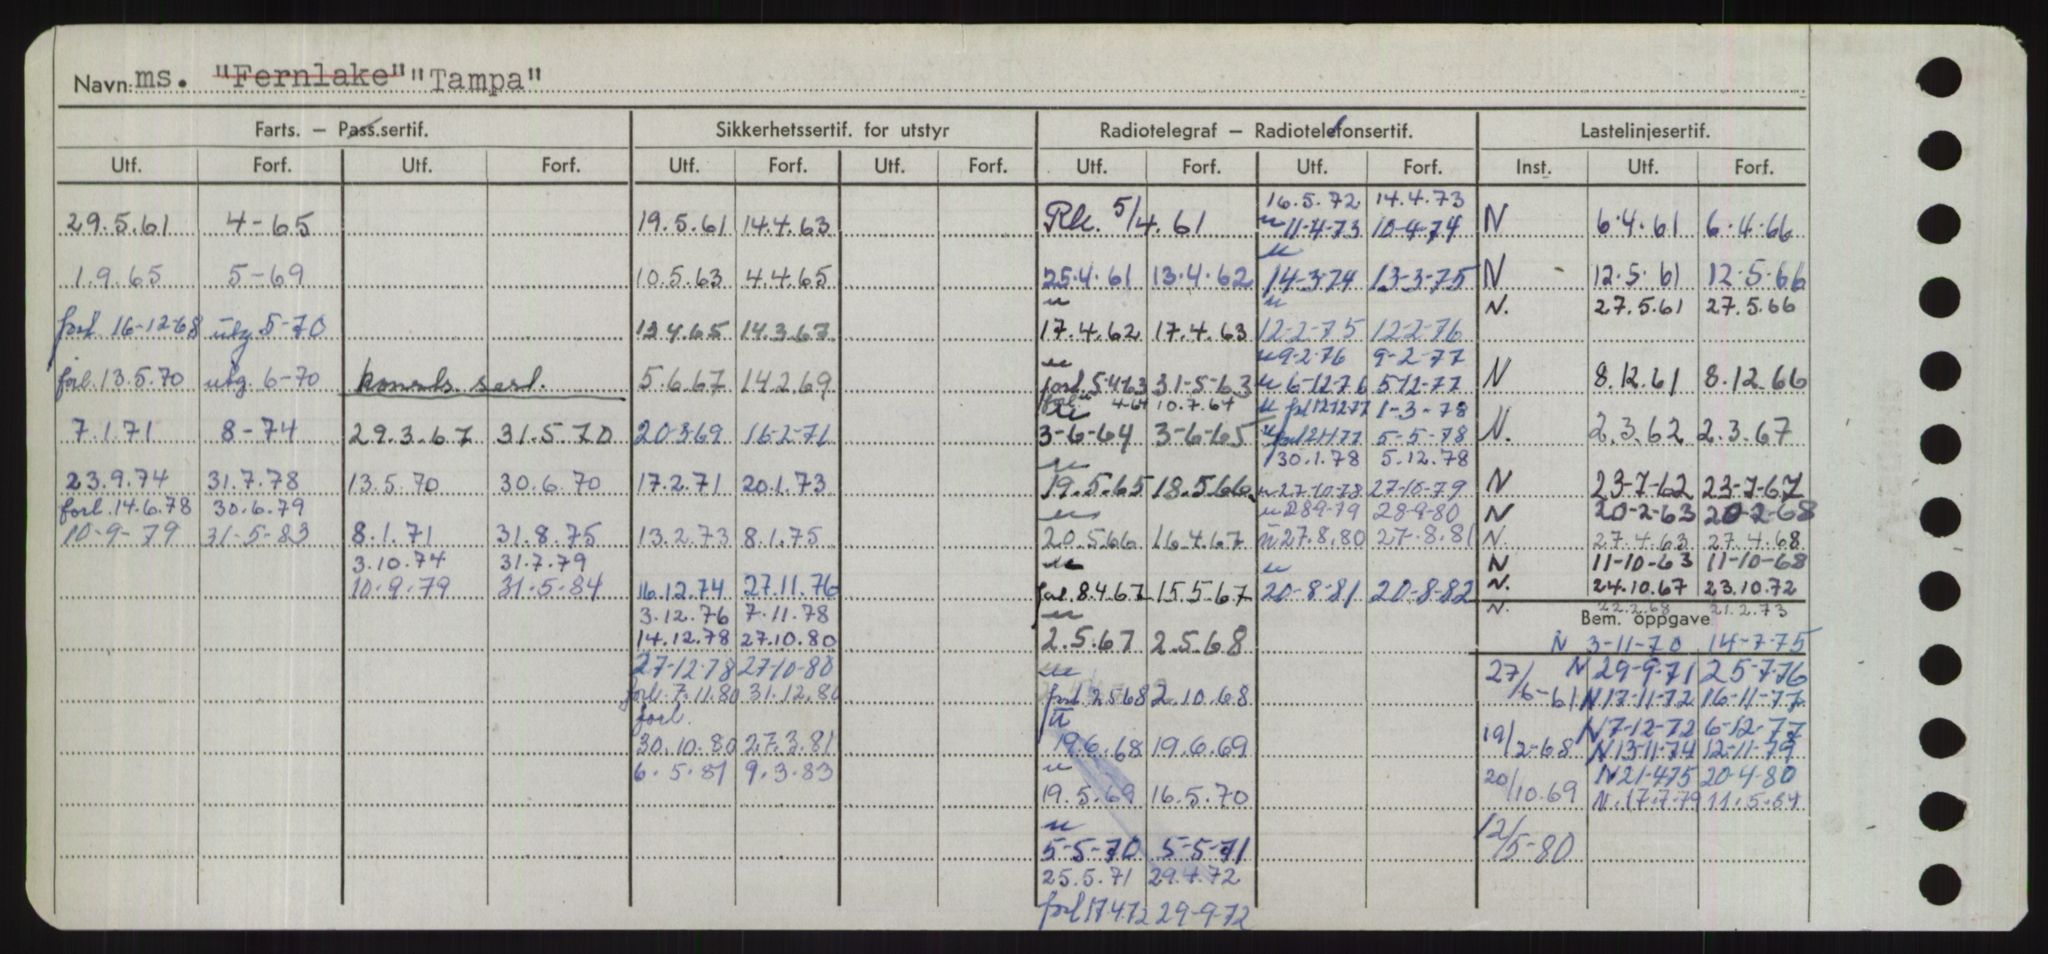 Navn: ms. "Fernlake" "Tampa"
Farts. – Pass.sertif. Sikkerhetssertif. for utstyr Radiotelegraf – Radiotelefonsertif. Lastelinjesertif.
Utf. Forf. Utf. Forf. Utf. Forf. Utf. Forf. Utf. Forf. Utf. Forf. Inst. Utf. Forf.
16.5.72 14.4.73
29.5.61 4-65 19.5.61 14.4.63 Rk. 5/4.61 11-4-73 10-4-74 N 6.4.61 6.4.66
1.9.65 5-69 10.5.63 4.4.65 25.4.61 13.4.62 14-3-74 13-3-75 N 12.5.61 12.5.66
N. 27.5.61 27.5.66
forl. 16-12-68 utg 5-70 14.3.67 17.4.62 17.4.63 12-2-75 12-2-76
9-2-76 9-2-77
forl. 13.5.70 utg. 6-70 5.6.67 14.2.69 forl. 5-4-63 31-5-63 6-12-76 5-12-77 N 8.12.61 8.12.66
10.7.64 1-3-78
7.1.71 8-74 29.3.67 31.5.70 20-3-69 16-2-71 3-6-64 3-6-65 5-5-78 N. 2.3.62 2.3.67
30.1.78 5.12.78
23.9.74 31.7.78 13.5.70 30.6.70 17.2.71 20.1.73 19.5.65 18.5.66 27-10-78 27-10-79 N 23-7-62 23-7-67
forl. 14.6.78 30.6.79 28-9-79 28-9-80 N 20-2-63 20-2-68
10-9-79 31-5-83 8.1.71 31.8.75 13.2.73 8.1.75 20.5.66 16.4.67 27.8.80 27-8-81 N. 27.4.63 27.4.68
3.10.74 31.7.79 N 11-10-63 11-10-68
10.9.79 31-5-84 16.12.74 27.11.76 forl. 8.4.67 15.5.67 20-8-81 20-8-82 N. 24.10.67 23.10.72
3.12.76 7.11.78 N. 22.2.68 21.2.73
Bem. oppgave
14.12.78 27.10.80 2.5.67 2.5.68 N 3-11-70 14-7-75
27-12-78 27-10-80 27/6-61 N 29-9-71 25-7-76
forl. 7.11.80 31.12.80 forl. 2.5.68 2.10.68 N 17-11-72 16-11-77
forl.
N 7-12-72 6-12-77
30.10.80 27.3.81 19.6.68 19.6.69 19/2-68 N 13-11-74 12-11-79
6.5.81 9.3.83 N 21-4-75 20-4-80
19.5.69 16.5.70 20/10.69 N. 17-7-79 11.5.84
5-5-70 5-5-71 12/5-80
25.5.71 29.4.72
forl 17.4.72 29-9-72